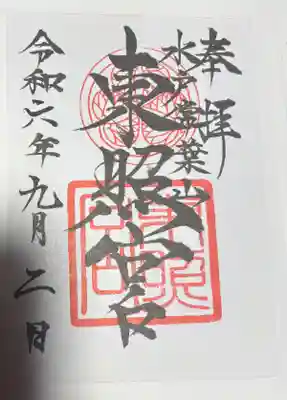 奉拝
水戸常葉山
東照宮
令和六年九月二日